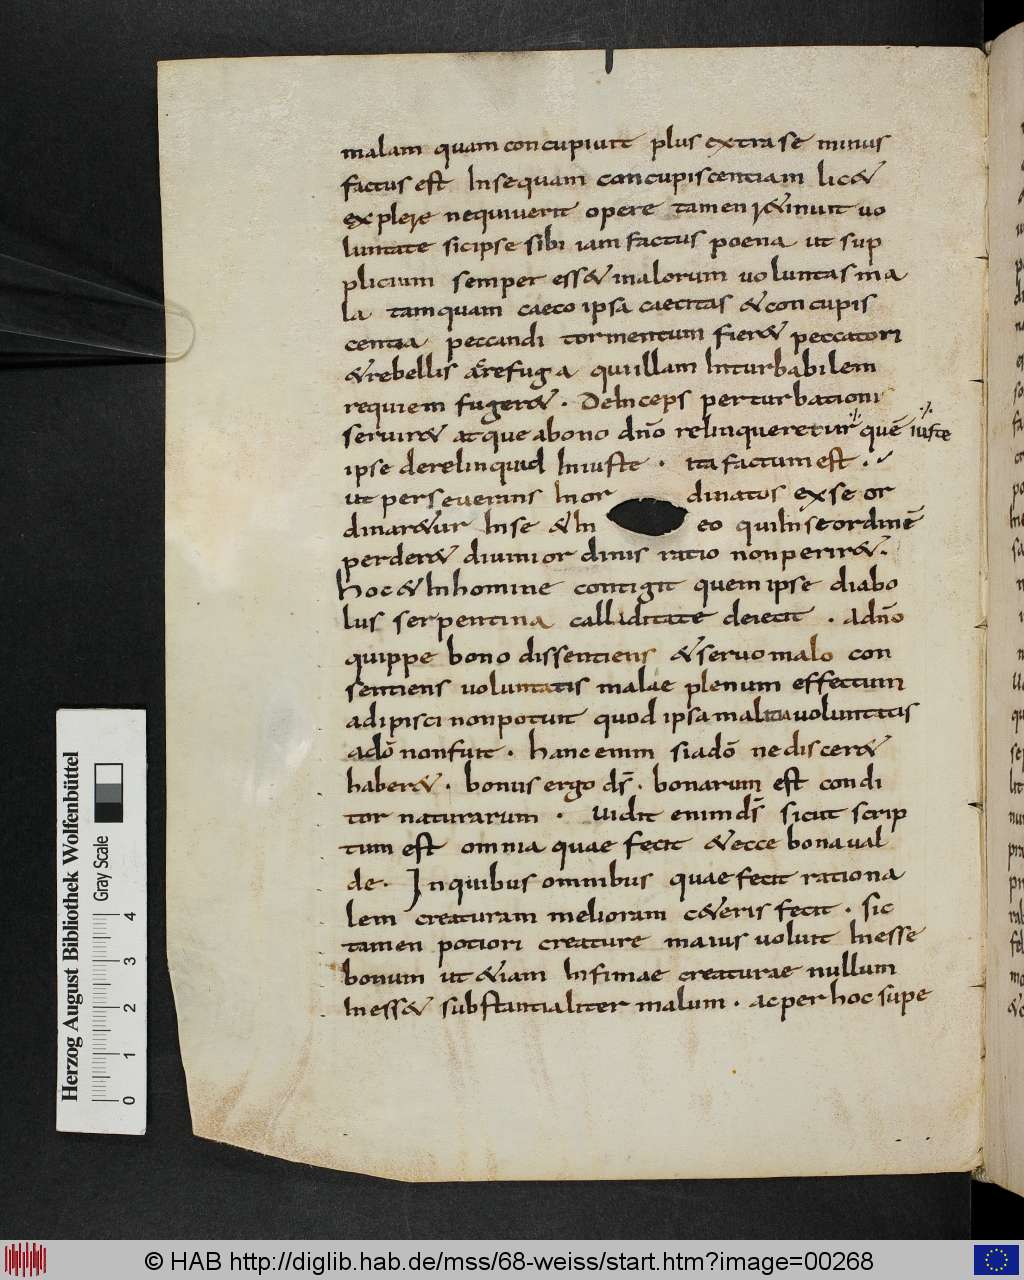 malam quam concupiuit plus extra se minus
factus est In se quam concupiscentiam lic&
explere nequiuerit opere tamen r&inuit uo
luntate sic ipse sibi iam factus poena ut sup
plicium semper ess& malorum uoluntas ma
la tamquam caeco ipsa caecitas & concupis
centia peccandi tormentum fier& peccatori
& rebellis ac refuga qui illam Inturbabilem
requiem fuger& · DeInceps perturbationi
seruir& atque a bono dño relinqueretur quē iuste
ipse derelinquid Iniuste · ita factum est ·
ut perseuerans Inor dinatus ex se or
dinar&ur In se & In eo qui In se ordinē
perder& diuini ordinis ratio non perir& ·
Hoc & In homine contigit quem ipse diabo
lus serpentina calliditate deiecit · Ad dño
quippe bono dissentiens & seruo malo con
sentiens uoluntatis malae plenum effectum
adipisci non potuit quod ipsa mala uoluntas
a dō non fuit · hanc enim si a dō ne discer&
haber& · bonus ergo ds̄ · bonarum est condi
tor naturarum · Uidit enim ds̄ sicut scrip
tum est omnia quae fecit & ecce bona ual
de · In quibus omnibus quae fecit rationa
lem creaturam melioram c&eris fecit · sic
tamen potiori creature maius uoluit Inesse
bonum ut &iam Infimae creaturae nullum
Iness& substantialiter malum · ac per hoc supe
Herzog August Bibliothek Wolfenbüttel
Gray Scale
0 1 2 3 4
© HAB http://diglib.hab.de/mss/68-weiss/start.htm?image=00268